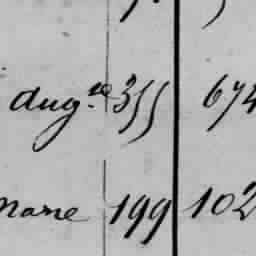 augte 355 674
mane 199 102